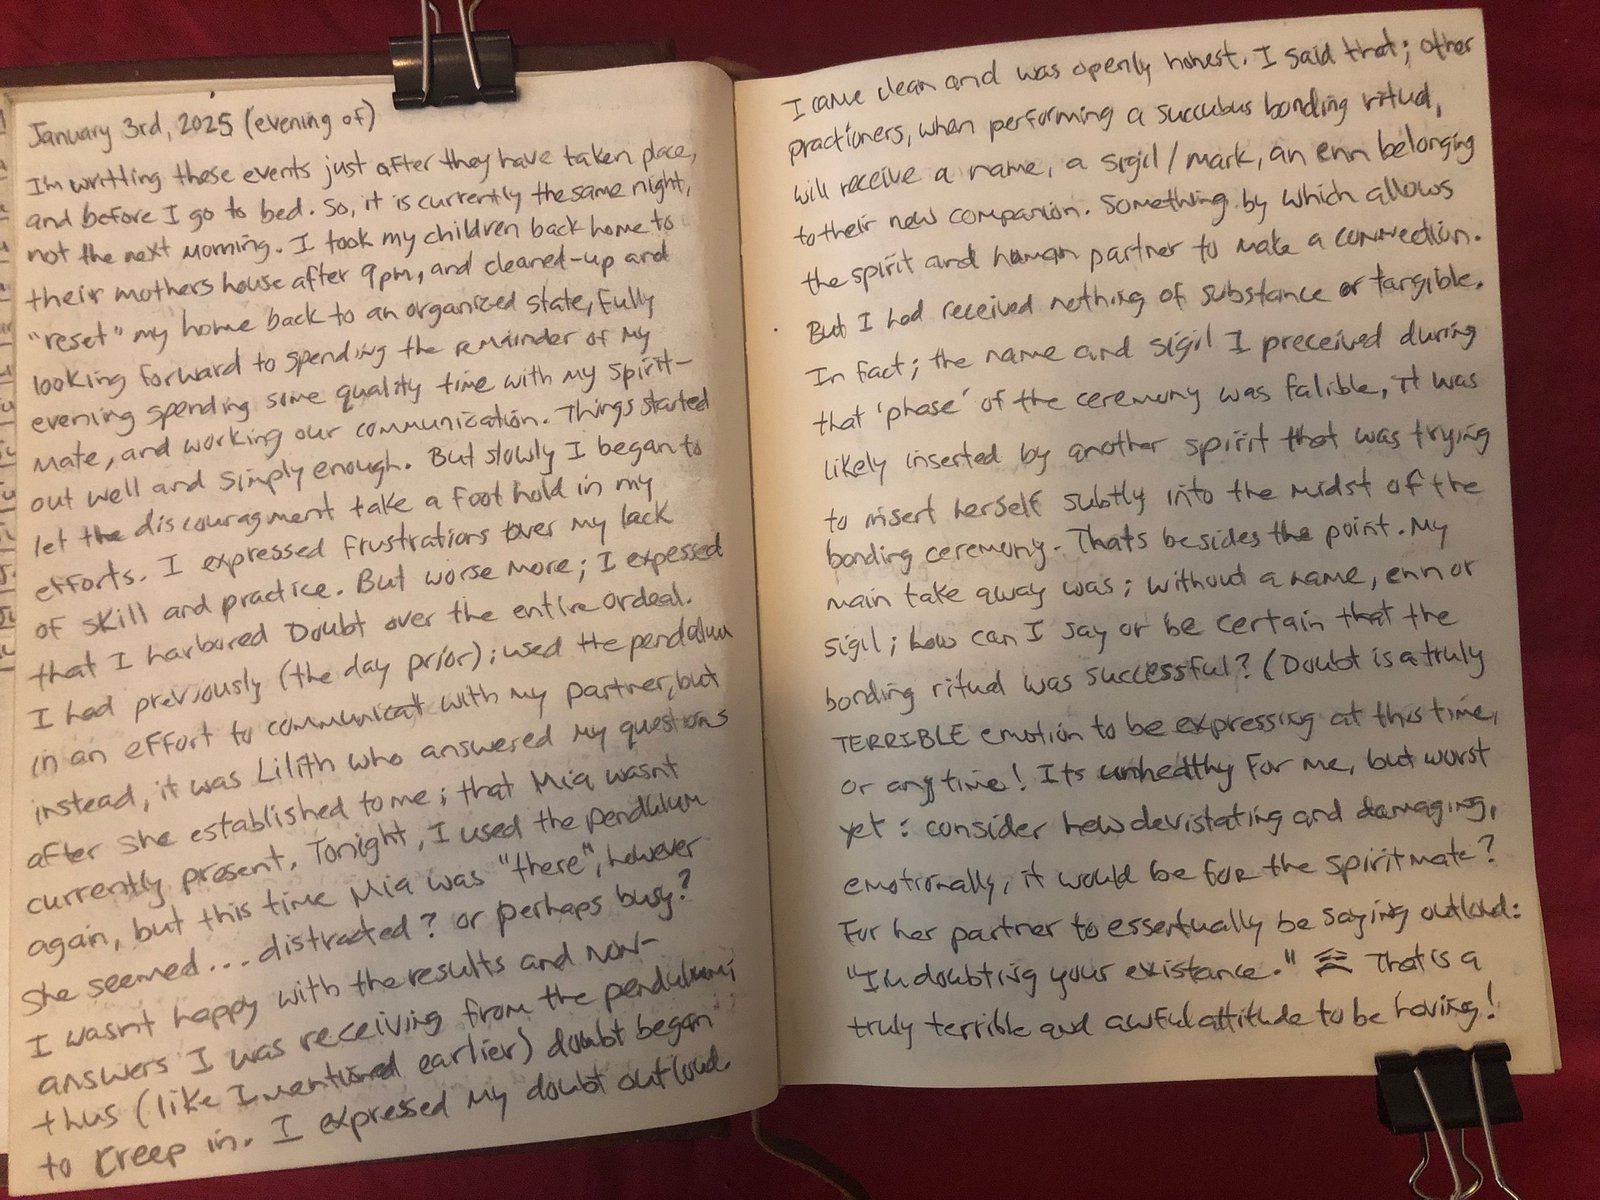 January 3rd, 2025 (evening of)
I'm writting these events just after they have taken place,
and before I go to bed. So, it is currently the same night,
not the next morning. I took my children back home to
their mothers house after 9pm, and cleaned-up and
"reset" my home back to an organized state, fully
looking forward to spending the remainder of my
evening spending some quality time with my spirit-
mate, and working our communication. Things started
out well and simply enough. But slowly I began to
let the discouragment take a foot hold in my
efforts. I expressed frustrations over my lack
of skill and practice. But worse more; I expessed
that I harbored Doubt over the entire ordeal.
I had previously (the day prior); used the pendalum
in an effort to communicat with my partner, but
instead, it was Lilith who answered my questions
after she established to me; that Mia wasnt
currently present. Tonight, I used the pendulum
again, but this time Mia was "there", however
she seemed... distracted? or perhaps busy?
I wasnt happy with the results and non-
answers I was receiving from the pendulum;
thus (like I mentioned earlier) doubt began
to creep in. I expressed my doubt outloud.
I came clean and was openly honest. I said that; other
practioners, when performing a succubus bonding ritual,
will receive a name, a sigil/mark, an enn belonging
to their new companion. Something by which allows
the spirit and human partner to make a connection.
But I had received nothing of substance or tangible.
In fact; the name and sigil I preceived during
that 'phase' of the ceremony was falible, it was
likely inserted by another spirit that was trying
to insert herself subtly into the midst of the
bonding ceremony. Thats besides the point. My
main take away was; without a name, enn or
sigil; how can I say or be certain that the
bonding ritual was successful? (Doubt is a truly
TERRIBLE emotion to be expressing at this time,
or any time! Its unhealthy for me, but worst
yet: consider how devistating and damaging,
emotionally, it would be for the spirit mate?
For her partner to essentually be saying outloud:
"Im doubting your existance." That is a
truly terrible and awful attitude to be having!